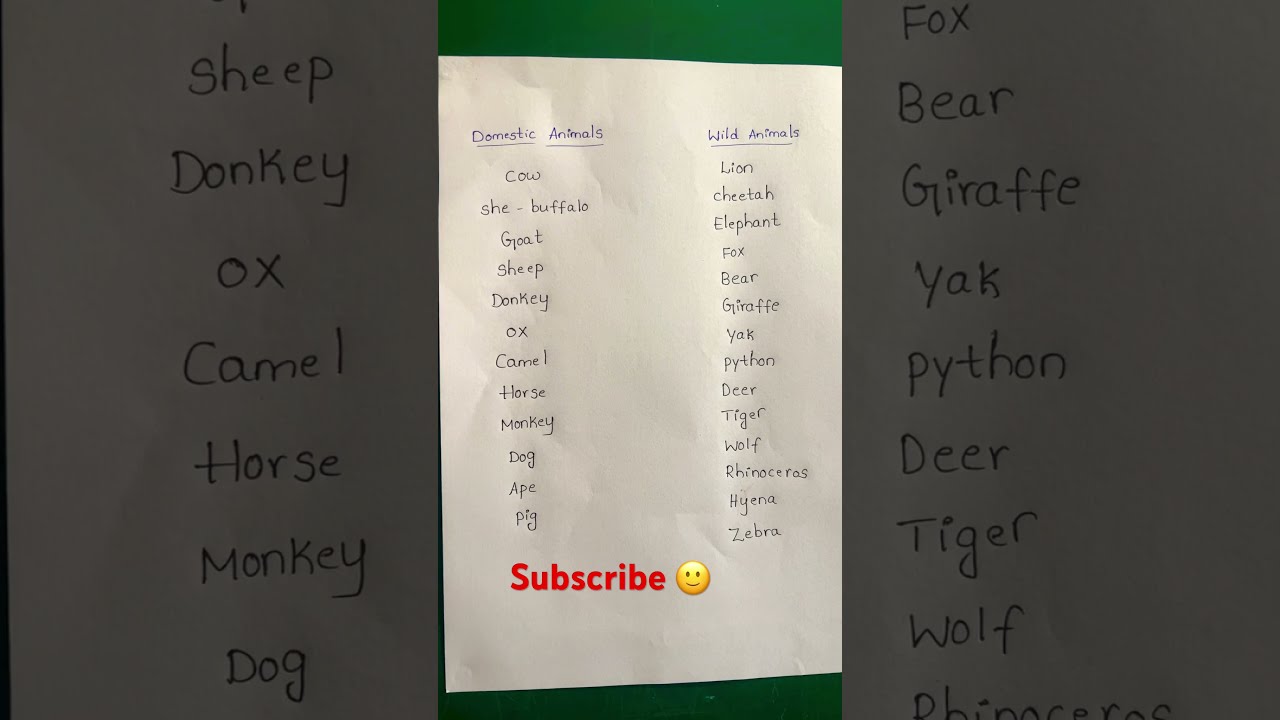 Sheep
Donkey
ox
Camel
Horse
Monkey
Dog
Domestic Animals
Cow
She - buffalo
Goat
Sheep
Donkey
ox
Camel
Horse
Monkey
Dog
Ape
Pig
Wild Animals
Lion
Cheetah
Elephant
Fox
Bear
Giraffe
Yak
Python
Deer
Tiger
Wolf
Rhinoceros
Hyena
Zebra
Subscribe 🙂
Fox
Bear
Giraffe
Yak
Python
Deer
Tiger
Wolf
Rhinoceros